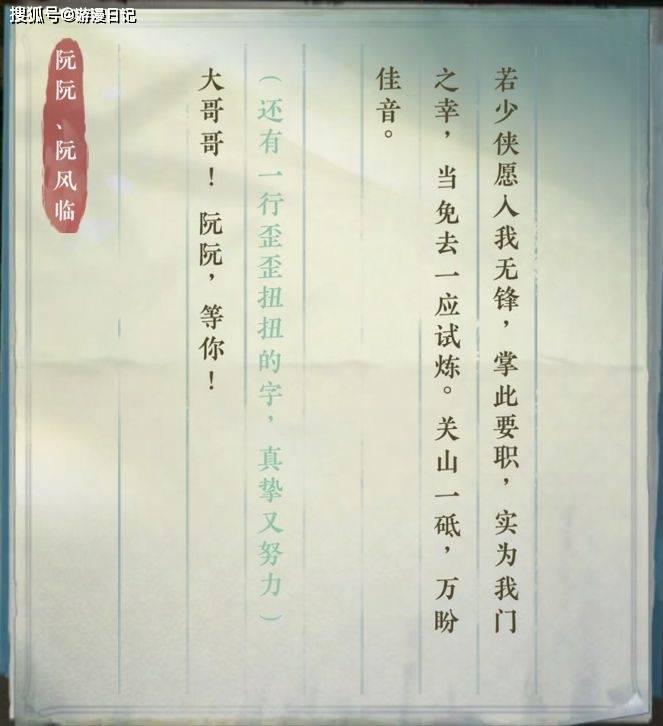 搜狐号@游漫日记
若少侠愿入我无锋，掌此要职，实为我门
之幸，当免去一应试炼。关山一砥，万盼
佳音。
（还有一行歪歪扭扭的字，真挚又努力）
大哥哥！阮阮，等你！
阮阮、阮风临